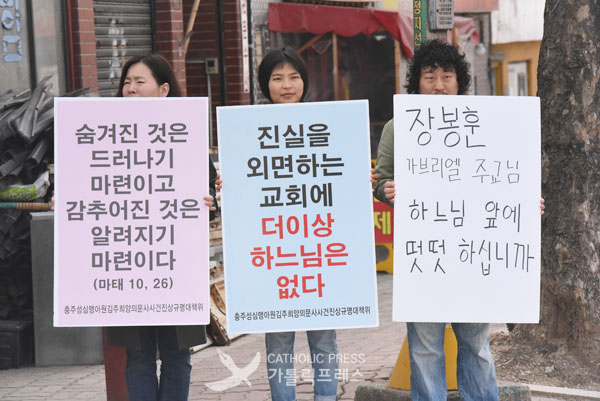 숨겨진 것은
드러나기
마련이고
감추어진 것은
알려지기
마련이다
(마태 10, 26)
충주성심맹아원김주희양의문사사건진상규명대책위
진실을
외면하는
교회에
더이상
하느님은
없다
충주성심맹아원김주희양의문사사건진상규명대책위
장봉훈
가브리엘 주교님
하느님 앞에
떳떳 하십니까
CATHOLIC PRESS
가톨릭프레스